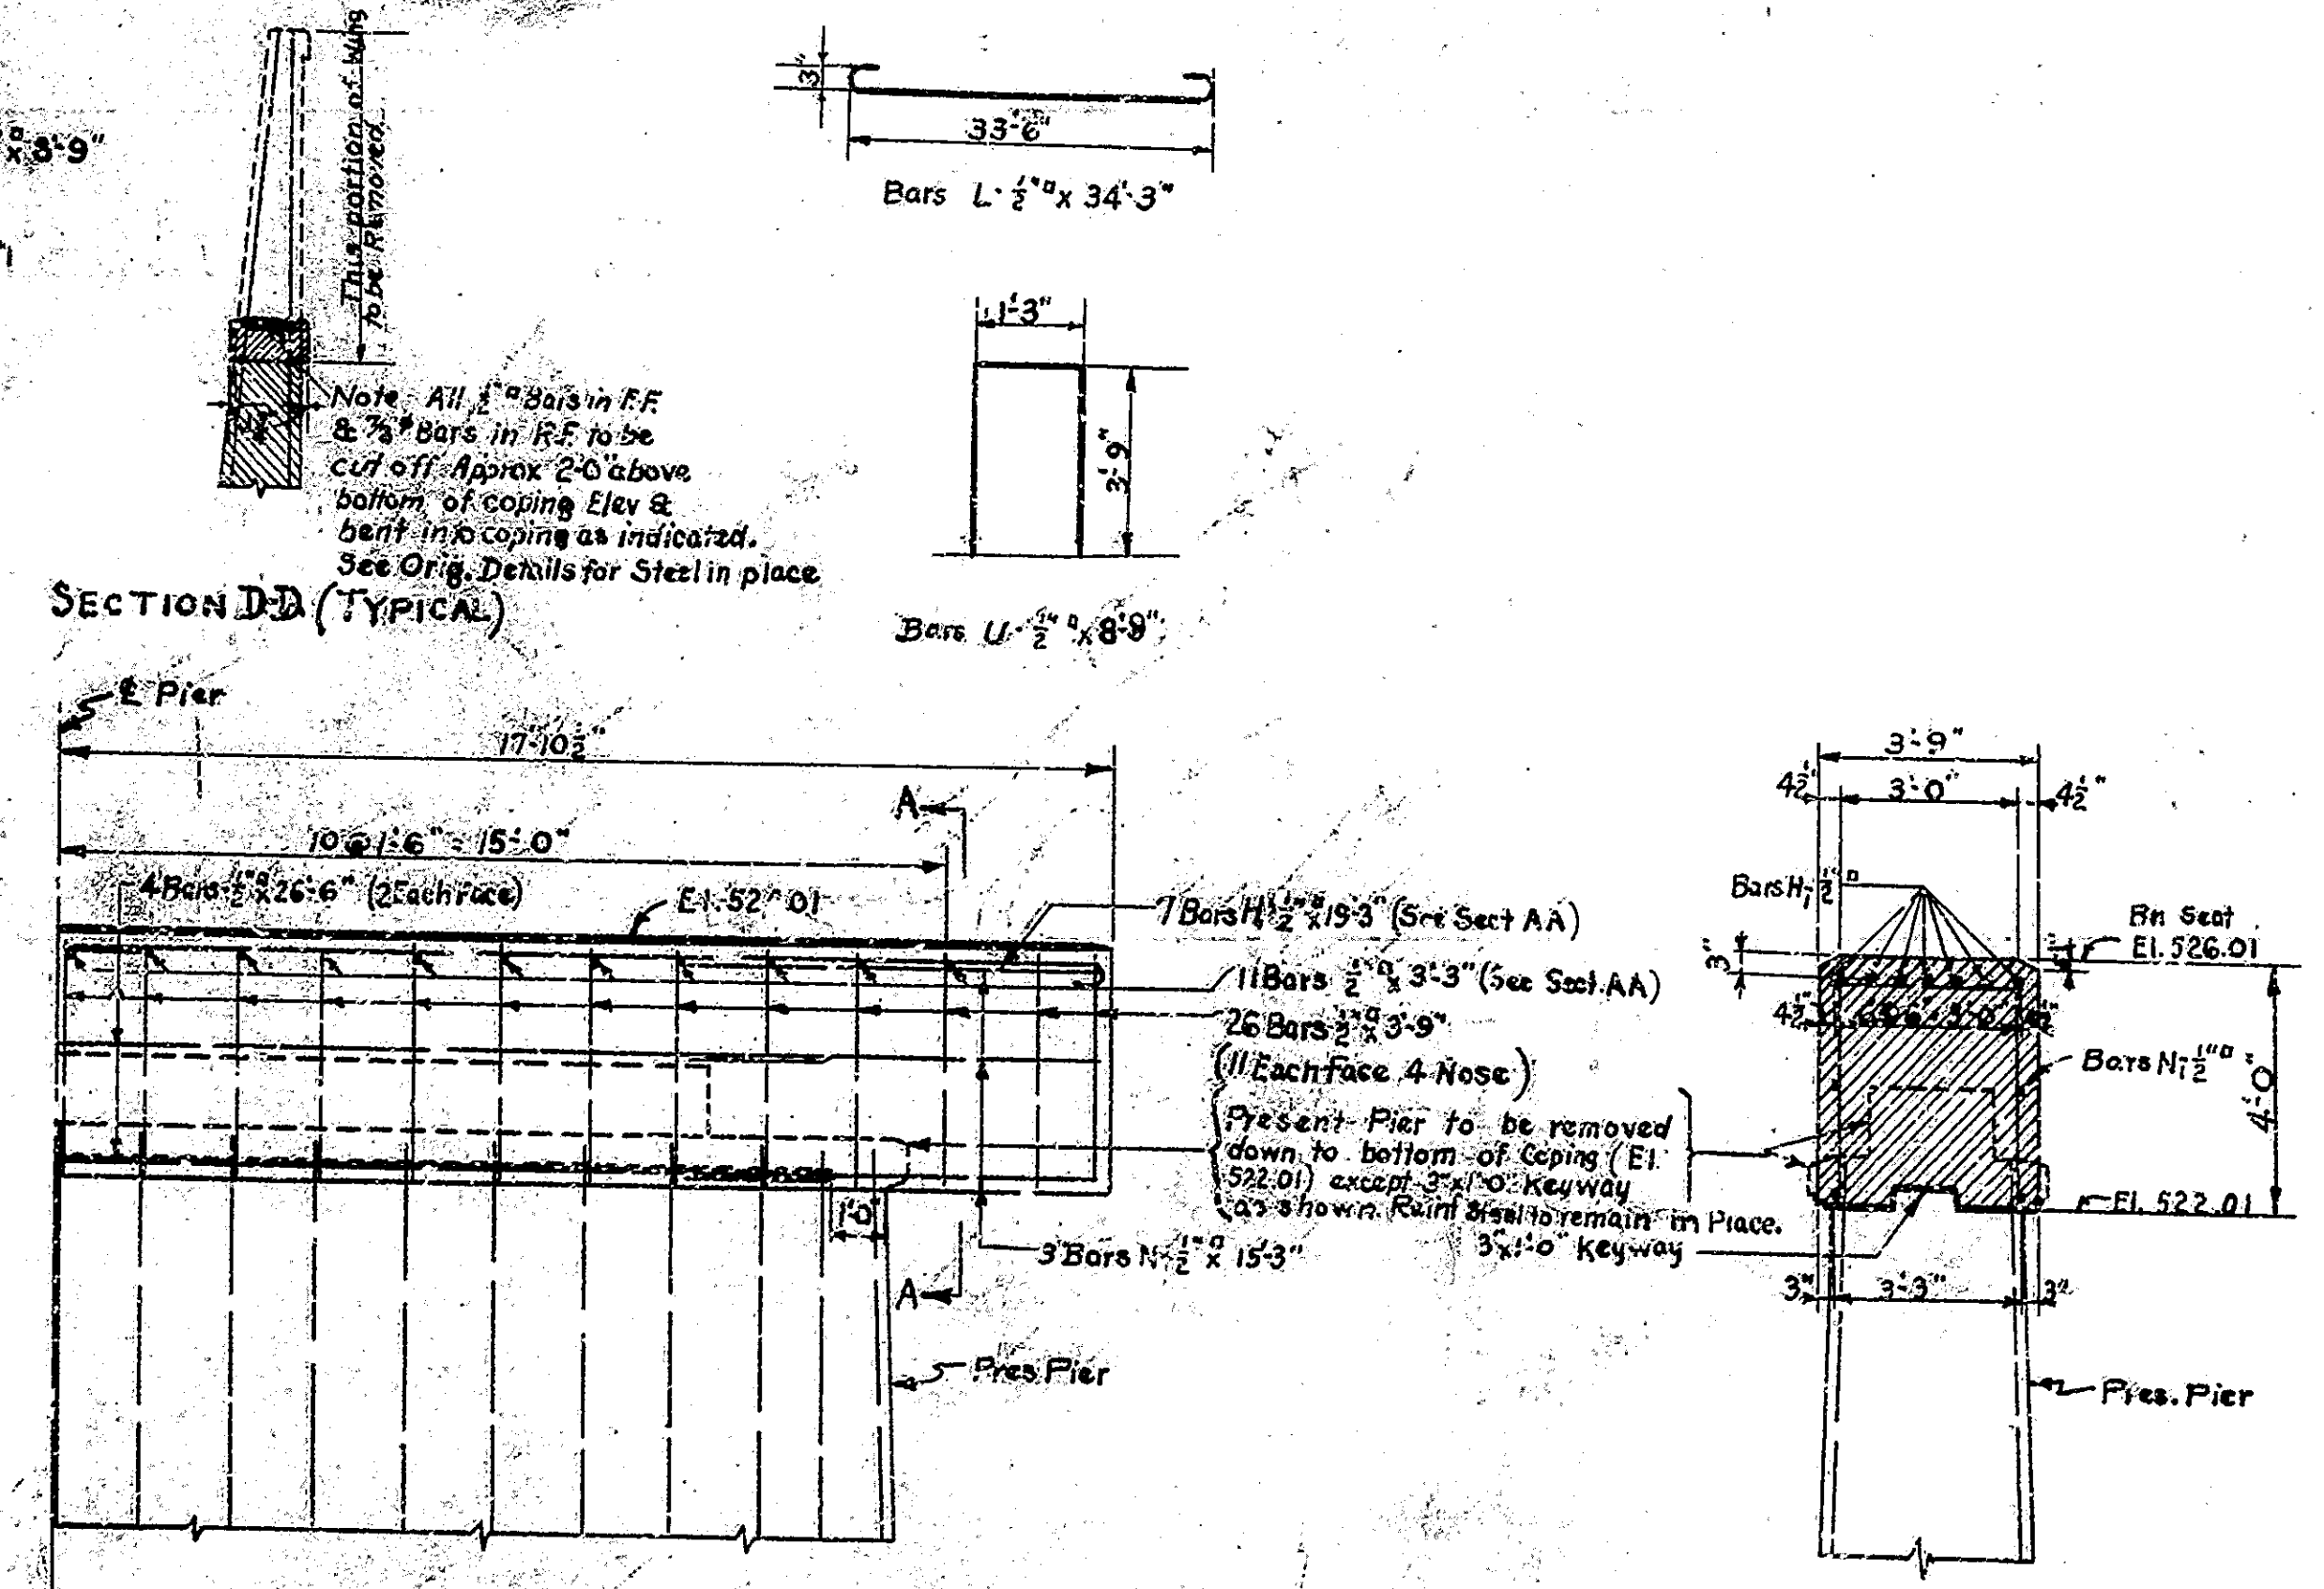 x 8'-9"
This portion of Wing
to be Removed
3"
33'-6"
Bars L - ½"□ x 34'-3"
1'-3"
3'-9"
Bars U - ½"□ x 8'-9"
Note All ½"□ Bars in F.F.
& ⅞"ᶲ Bars in R.F. to be
cut off Approx 2'-0" above
bottom of coping Elev &
bent into coping as indicated.
See Orig. Details for Steel in place
SECTION D-D (TYPICAL)
℄ Pier
17'-10½"
A
10 @ 1'-6" = 15'-0"
4 Bars - ½"□ x 26'-6" (2 Each Face)
El. 526.01
7 Bars H₁ ½"□ x 19'-3" (See Sect AA)
11 Bars ½"□ x 3'-3" (See Sect. AA)
26 Bars ½"□ x 3'-9"
(11 Each Face 4 Nose)
Present Pier to be removed
down to bottom of Coping (El.
522.01) except 3"x1'-0" Keyway
as shown. Reinf Steel to remain in Place.
1'-0"
3 Bars N₁ - ½"□ x 15'-3"
A
Pres. Pier
3'-9"
4½" 3'-0" 4½"
Bars H₁ - ½"□
Bn Seat
El. 526.01
3"
4½"
Bars N₁ - ½"□
4'-0"
El. 522.01
3"x1'-0" Keyway
3" 3'-3" 3"
Pres. Pier